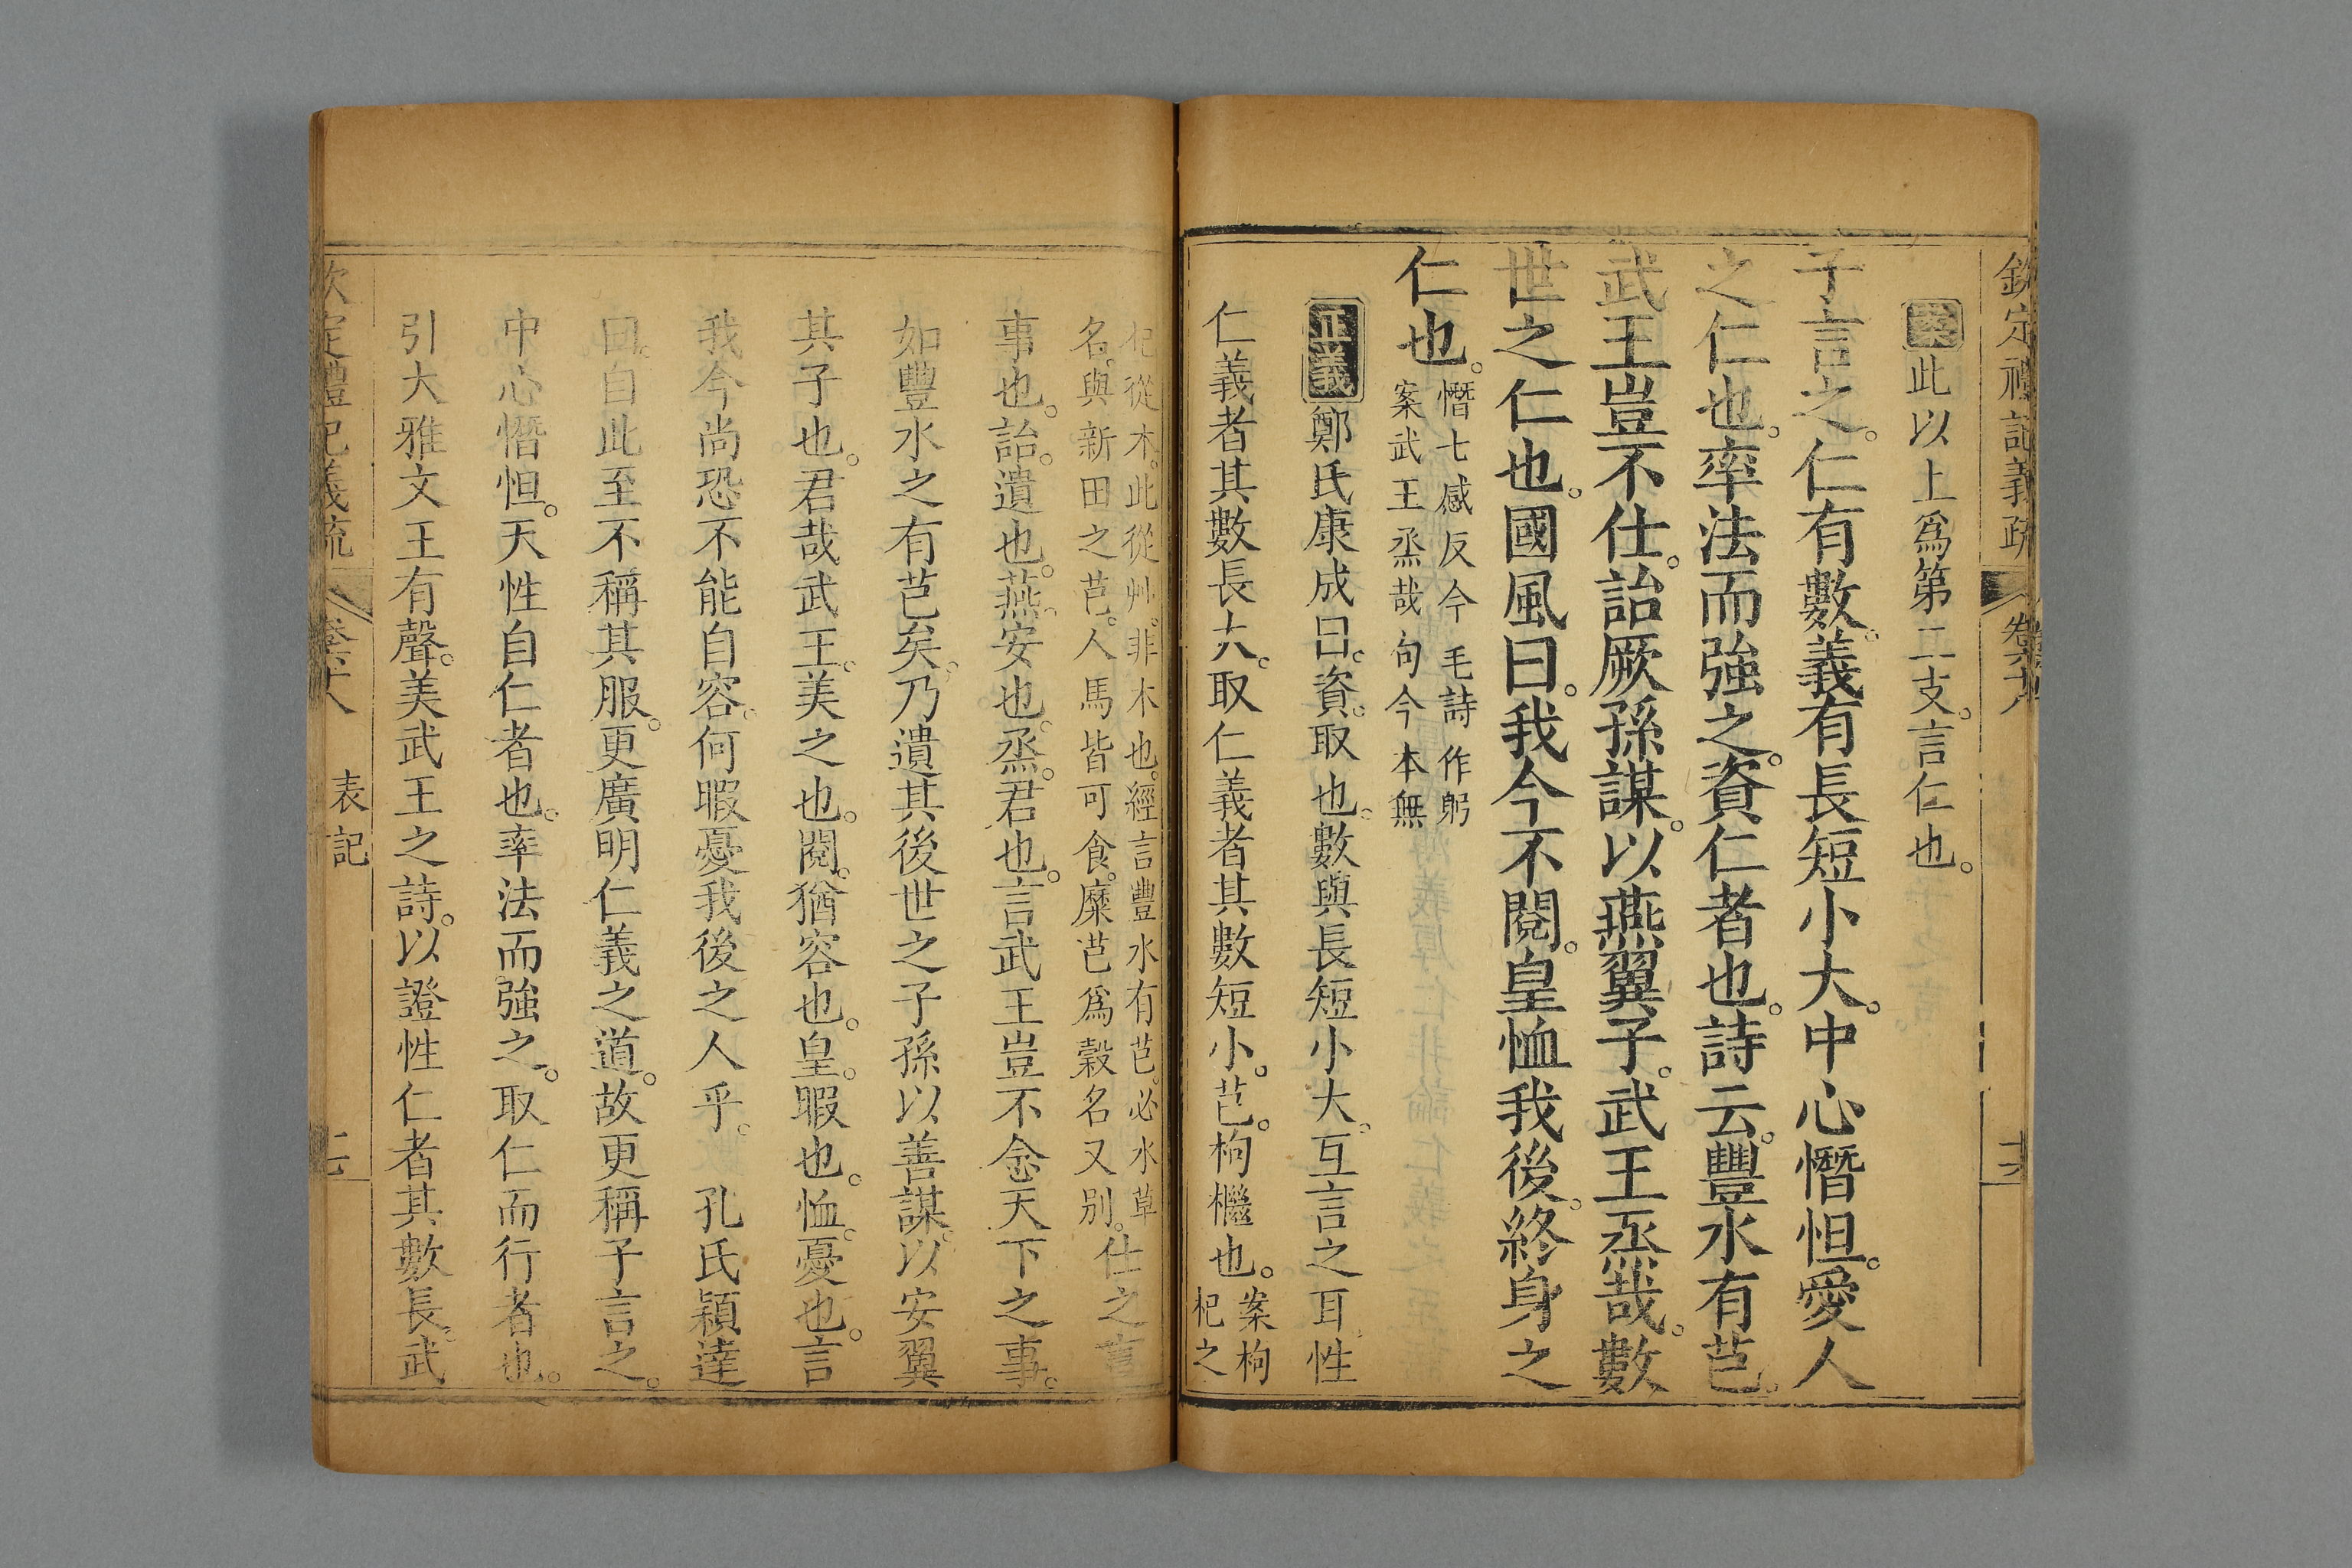 欽定禮記義疏 卷六十八 十六
案此以上爲第二支。言仁也。
子言之。仁有數。義有長短小大。中心憯怛。愛人
之仁也。率法而強之。資仁者也。詩云。豐水有芑。
武王豈不仕。詒厥孫謀。以燕翼子。武王烝哉。數
世之仁也。國風曰。我今不閱。皇恤我後。終身之
仁也。
憯七感反今毛詩作躬
案武王烝哉句今本無
正義鄭氏康成曰。資。取也。數與長短小大。互言之耳。性
仁義者其數長大。取仁義者其數短小。芑。枸檵也。
案枸
杞之
杞從木。此從艸。非木也。經言豐水有芑。必水草
名。與新田之芑。人馬皆可食。糜芑爲穀名又別。
仕之言
事也。詒。遺也。燕。安也。烝。君也。言武王豈不念天下之事。
如豐水之有芑矣。乃遺其後世之子孫以善謀。以安翼
其子也。君哉武王。美之也。閱。猶容也。皇。暇也。恤。憂也。言
我今尚恐不能自容。何暇憂我後之人乎。 孔氏穎達
曰。自此至不稱其服。更廣明仁義之道。故更稱子言之。
中心憯怛。天性自仁者也。率法而強之。取仁而行者也。
引大雅文王有聲。美武王之詩。以證性仁者其數長。武
欽定禮記義疏 卷六十八 表記 十七